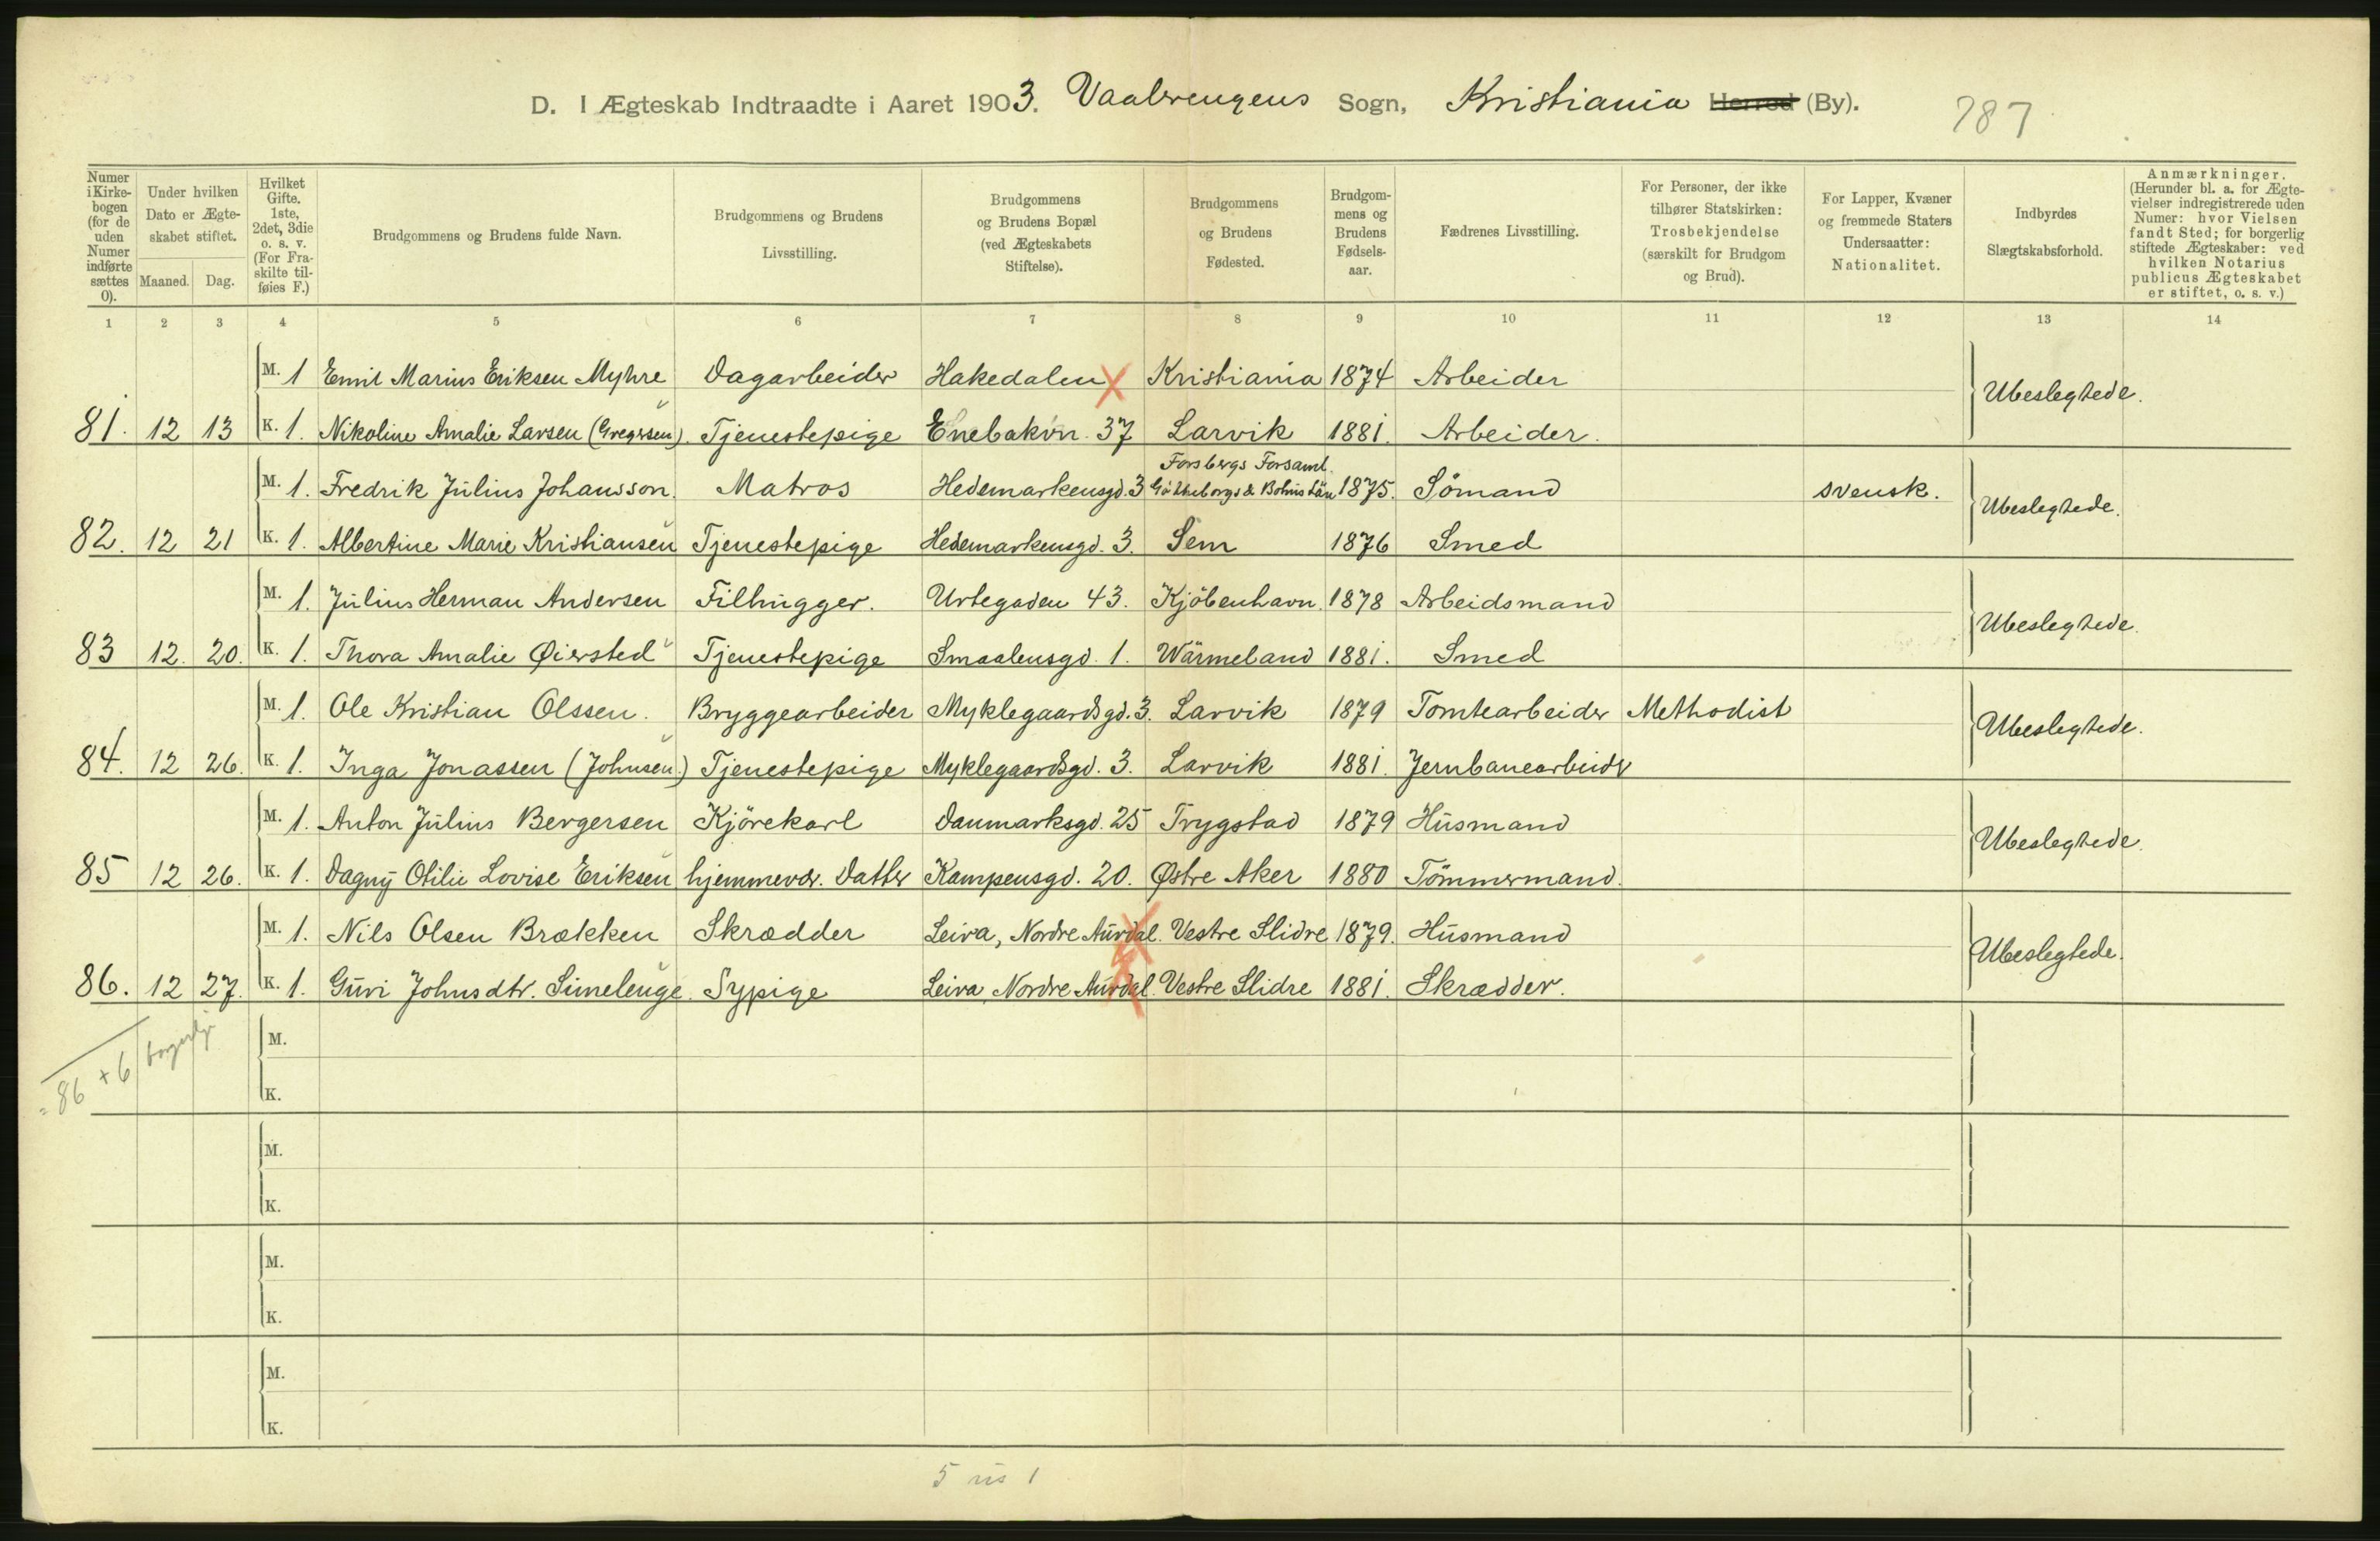 D. I Ægteskab Indtraadte i Aaret 1903. Vaalerengens Sogn, Kristiania Herred (By). 787
Numer i Kirkebogen (for de uden Numer indførte sættes 0).
Under hvilken Dato er Ægteskabet stiftet.
Maaned. Dag.
Hvilket Gifte. 1ste, 2det, 3die o. s. v. (For Fraskilte tilføies F.)
Brudgommens og Brudens fulde Navn.
Brudgommens og Brudens Livsstilling.
Brudgommens og Brudens Bopæl (ved Ægteskabets Stiftelse).
Brudgommens og Brudens Fødested.
Brudgommens og Brudens Fødselsaar.
Fædrenes Livsstilling.
For Personer, der ikke tilhører Statskirken: Trosbekjendelse (særskilt for Brudgom og Brud).
For Lapper, Kvæner og fremmede Staters Undersaatter: Nationalitet.
Indbyrdes Slægtskabsforhold.
Anmærkninger. (Herunder bl. a. for Ægtevielser indregistrerede uden Numer: hvor Vielsen fandt Sted; for borgerlig stiftede Ægteskaber: ved hvilken Notarius publicus Ægteskabet er stiftet, o. s. v.)
1 2 3 4 5 6 7 8 9 10 11 12 13 14
M. 1 Emil Marius Eriksen Myhre Dagarbeider Hakedalen Kristiania 1874 Arbeider
Ubeslegtede.
81. 12 13 K. 1. Nikoline Amalie Larsen (Gregersen). Tjenestepige Enebakvn. 37 Larvik 1881. Arbeider.
Forsbergs Forsaml.
M. 1. Fredrik Julius Johansson. Matros Hedemarkensgd. 3 Götheborgs & Bohus Län 1875. Sömand svensk.
Ubeslegtede.
82. 12 21 K. 1. Albertine Marie Kristiansen Tjenestepige Hedemarkensgd. 3. Sem 1876 Smed
M. 1. Julius Herman Andersen Filhugger. Urtegaden 43. Kjöbenhavn. 1878 Arbeidsmand
Ubeslegtede.
83 12. 20. K. 1. Thora Amalie Øiersted Tjenestepige Smaalensgd. 1. Wärmeland 1881. Smed
M. 1. Ole Kristian Olssen. Bryggearbeider Myklegaardsgd. 3. Larvik 1879 Tomtearbeider Methodist
Ubeslegtede.
84. 12 26. K. 1. Inga Jonassen (Johnsen) Tjenestepige Myklegaardsgd. 3. Larvik 1881. Jernbanearbeider
M. 1. Anton Julius Bergersen Kjörekarl Danmarksgd. 25 Trygstad 1879 Husmand
Ubeslegtede.
85 12 26. K. 1. Dagny Otilie Lovise Eriksen hjemmevær. Datter Kampensgd. 20. Østre Aker 1880 Tömmermand.
M. 1. Nils Olsen Brækken Skrædder Leira, Nordre Aurdal. Vestre Slidre 1879. Husmand
Ubeslegtede.
86. 12 27. K. 1. Guri Johnsdtr. Simelenge. Sypige Leira, Nordre Aurdal. Vestre Slidre 1881. Skrædder.
= 86 + 6
M.
K.
M.
K.
M.
K.
M.
K.